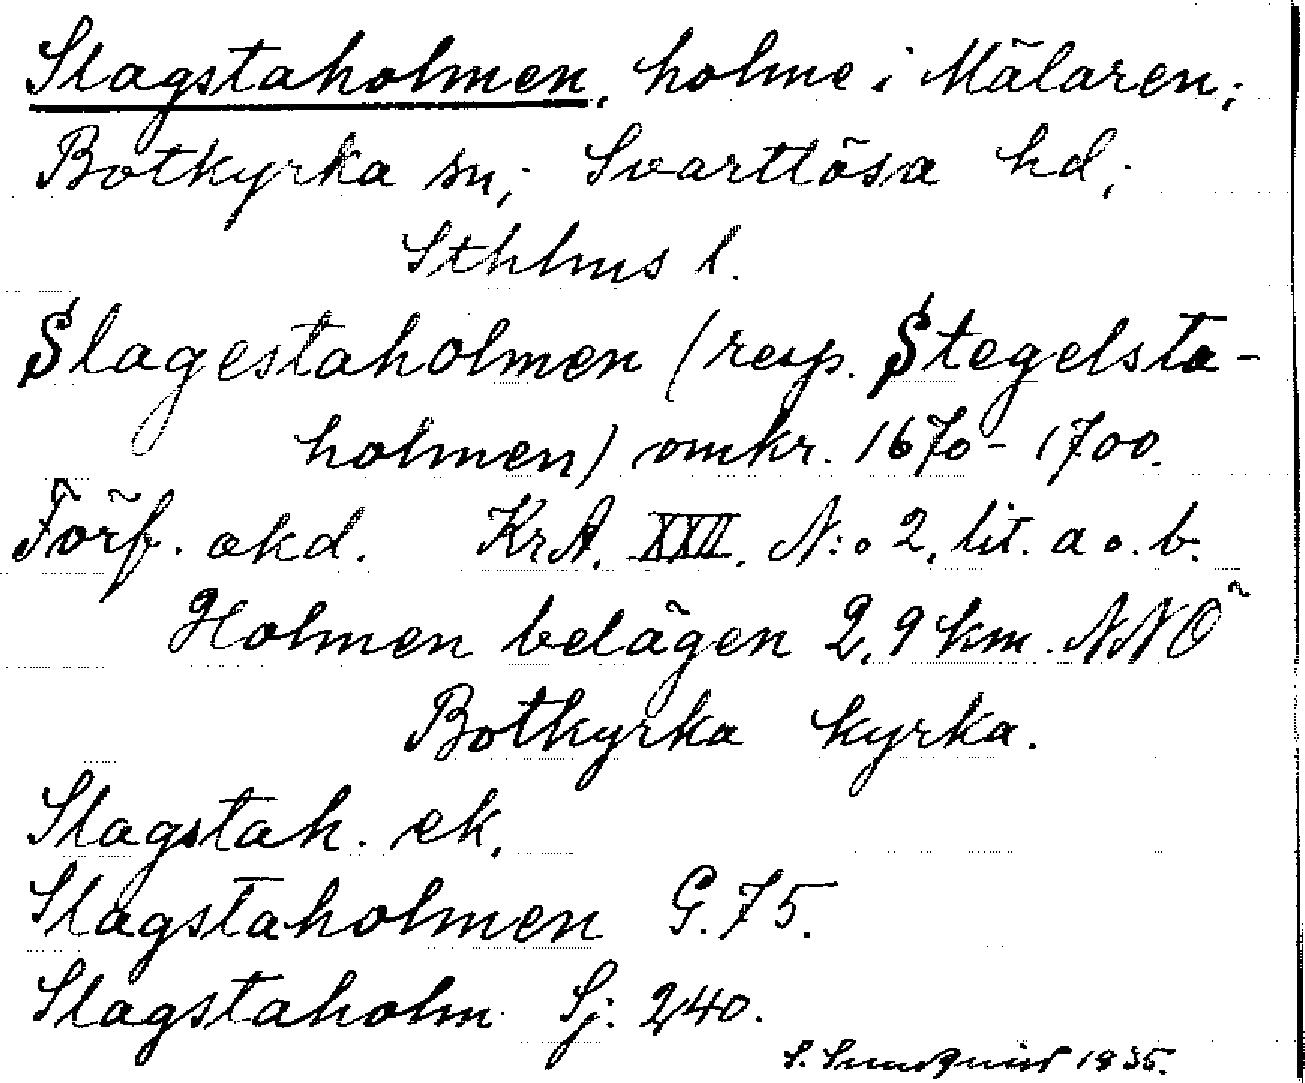 Slagstaholmen, holme i Mälaren;
Botkyrka sn; Svartlösa hd;
Sthlms l.
Slagestaholmen (resp. Stegelsta-
holmen) omkr. 1670-1700.
Förf. okd. KrA. XXII. N:o 2, lit. a o. b.
Holmen belägen 2,9 km. NNÖ
Botkyrka kyrka.
Slagstah. ek.
Slagstaholmen G.75.
Slagstaholm Sj. 240.
S. Sundquist 1935.